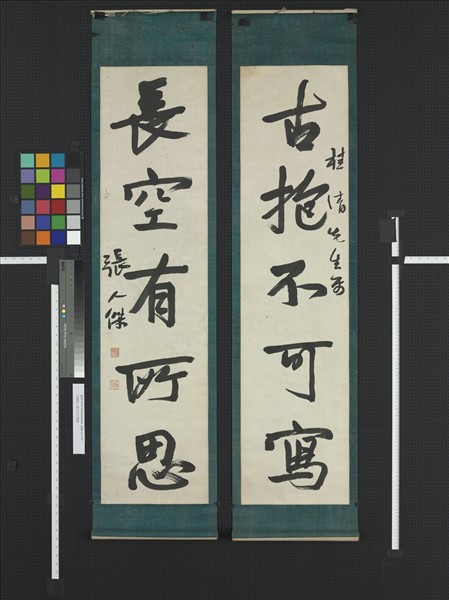 古抱不可寫
桂清先生屬
長空有所思
張人傑